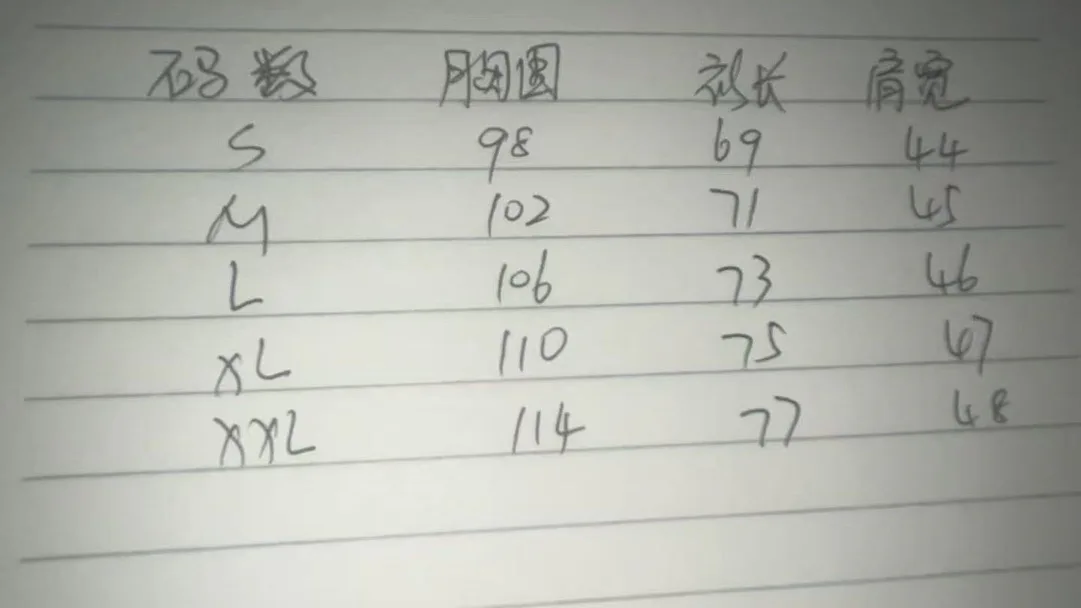 码数 胸围 衫长 肩宽
S 98 69 44
M 102 71 45
L 106 73 46
XL 110 75 47
XXL 114 77 48